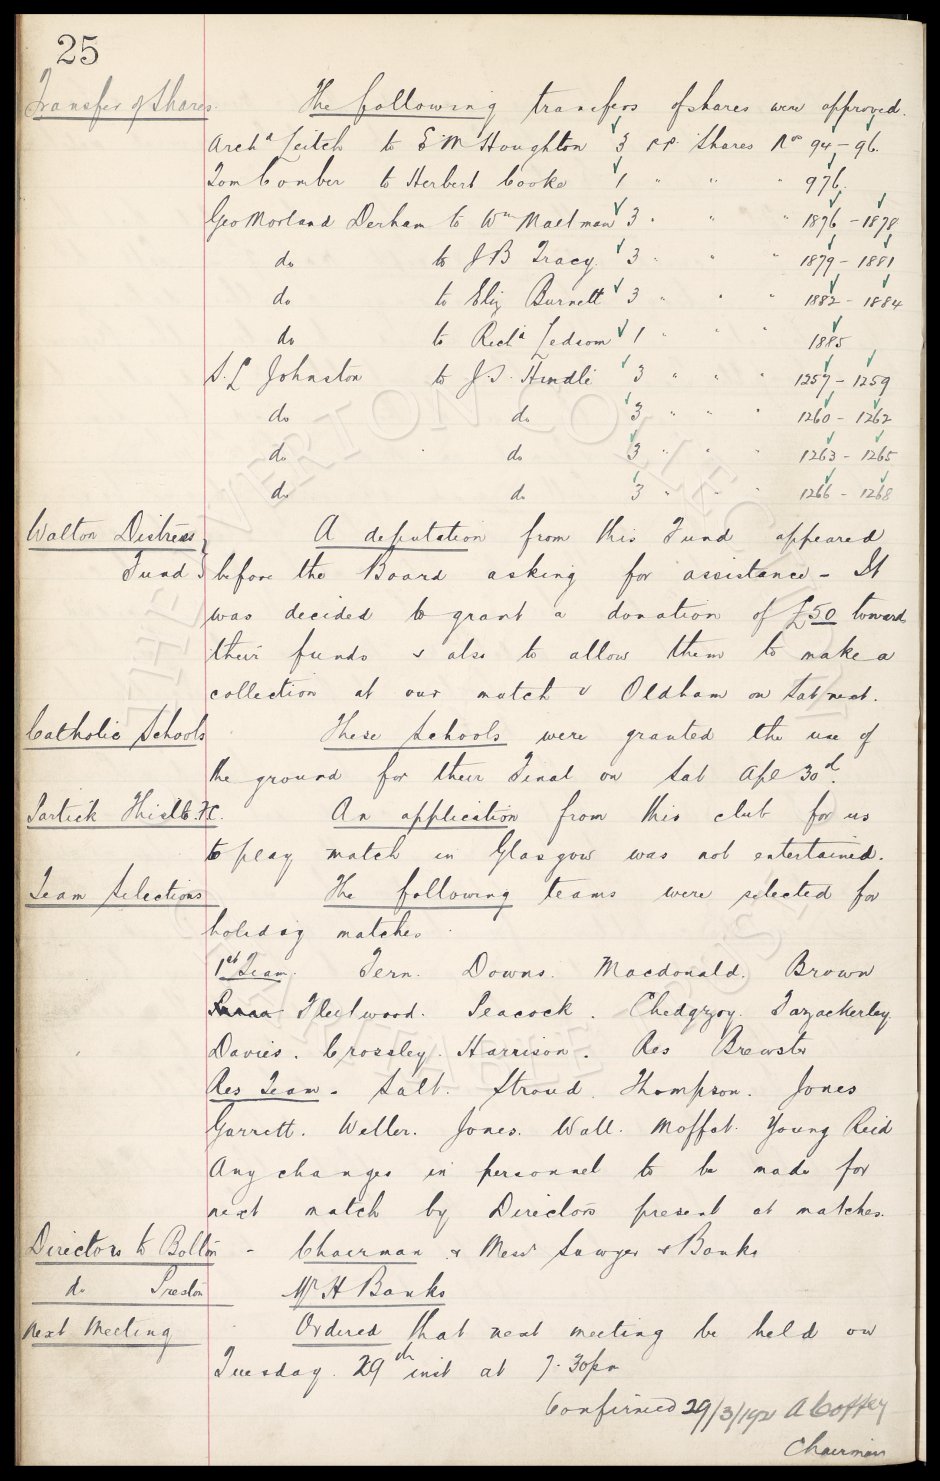 25
Transfer of Shares. The following transfers of shares were approved.
Archd Leitch to E M Houghton 3 P.P. Shares Nos 94 - 96.
Tom Comber to Herbert Cooke 1 " " " 976.
Geo Morland Derham to Wm Maltman 3 " " " 1876 - 1878
do to J B Tracy. 3 " " " 1879 - 1881
do to Eliz Burnett 3 " " " 1882 - 1884
do to Richd Ledsom 1 " " " 1885
S. L Johnston to J. S. Hindle 3 " " " 1257 - 1259
do do 3 " " " 1260 - 1262
do do 3 " " " 1263 - 1265
do do 3 " " " 1266 - 1268
Walton Distress A deputation from this Fund appeared
Fund } before the Board asking for assistance - It
was decided to grant a donation of £50 toward
their funds & also to allow them to make a
collection at our match v Oldham on Sat next.
Catholic Schools These Schools were granted the use of
the ground for their Final on Sat Apl 30th.
Partick Thistle F.C. An application from this club for us
to play match in Glasgow was not entertained.
Team Selections The following teams were selected for
holiday matches.
1st Team. Fern. Downs. Macdonald. Brown
Fleetwood. Peacock. Chedgzoy. Fazackerley.
Davies. Crossley. Harrison. Res Brewster
Res Team - Salt. Stroud. Thompson. Jones
Garrett. Weller. Jones. Wall. Moffat. Young Reid
Any changes in personnel to be made for
next match by Directors present at matches.
Directors to Bolton - Chairman & Messrs Sawyer & Banks
do Preston Mr H Banks
Next Meeting Ordered that next meeting be held on
Tuesday 29th inst at 7.30pm
Confirmed 29/3/1921 A Coffey
Chairman
THE EVERTON COLLECTION
CHARITABLE TRUST